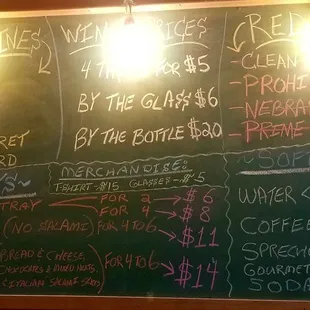 INES
WIN PRICES
RED
4 FOR $5
BY THE GLASS $6
BY THE BOTTLE $20
- CLEAN
- PROHI
- NEBRAS
- PRIME
RET
RD
MERCHANDISE:
TSHIRT - $15 GLASSES - $5
TRAY
(NO SALAMI)
FOR 2 → $6
FOR 4 → $8
FOR 4 TO 6 → $11
BREAD & CHEESE,
CHOCOLATES & MIXED NUTS,
ITALIAN SALAMI
FOR 4 TO 6 → $14
SOF
WATER
COFFEE
SPRECH
GOURMET
SODA